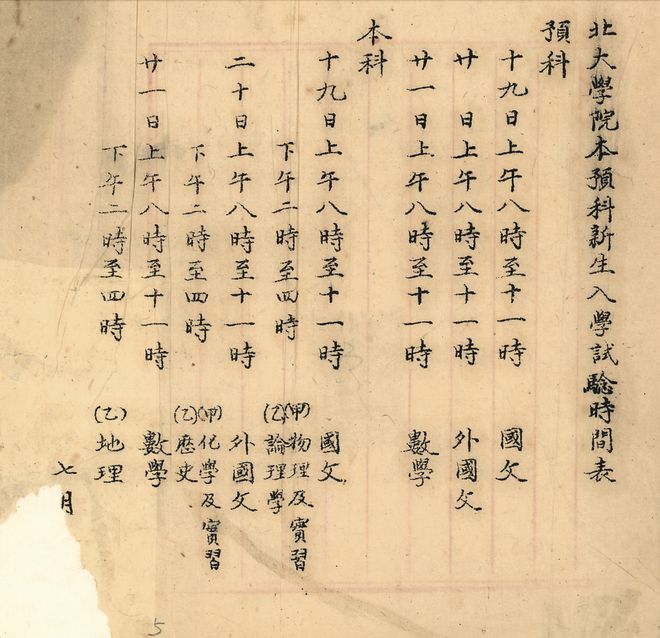 北大學院本預科新生入學試驗時間表
預科
十九日上午八時至十一時 國文
廿 日上午八時至十一時 外國文
廿一日上午八時至十一時 數學
本科
十九日上午八時至十一時 國文
下午二時至四時 (甲)物理及實習
(乙)論理學
二十日上午八時至十一時 外國文
下午二時至四時 (甲)化學及實習
(乙)歷史
廿一日上午八時至十一時 數學
下午二時至四時 (乙)地理
七月
5